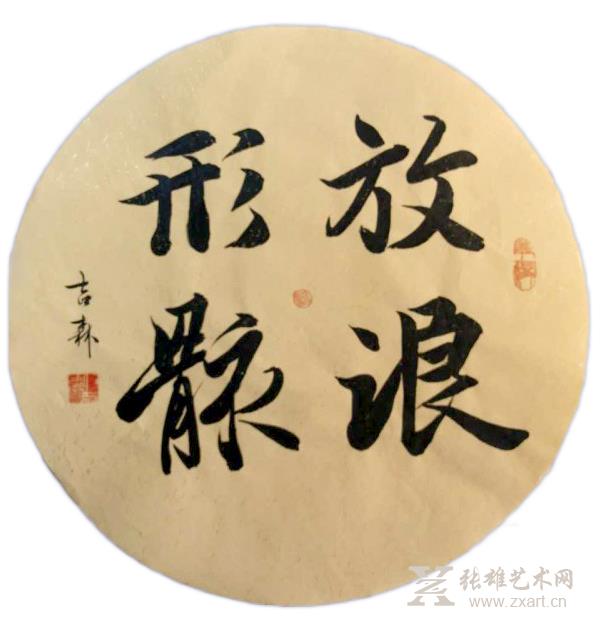 放浪
形骸
吉森
张雄艺术网
www.zxart.cn